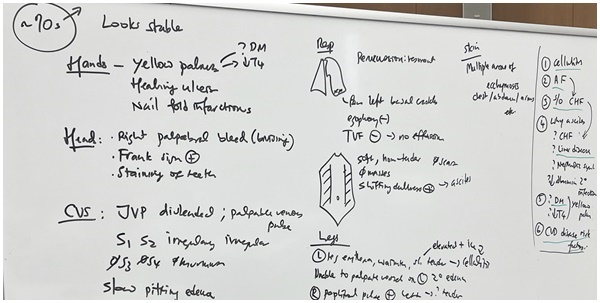 ~70s
Looks stable
Hands - Yellow palms ? DM
↓T4
Healing ulcers
Nail fold infarctions
Head: • Right palpebral bleed (bruising)
• Frank sign +
• Staining of teeth
CVS: JVP distended; palpable venous pulse
S1 S2 irregularly irregular
∅S3 ∅S4 ∅murmurs
Slow pitting edema
Resp
Percussion: resonant
Few left basal crackles
egophony (-)
TVF - → no effusion
soft, non-tender ∅scars
∅masses
shifting dullness + → ascites
Legs
L leg erythema, warmth, tender → cellulitis
elevated
Unable to palpate vessel on L 2° edema
R popliteal pulse +
? tender
skin
Multiple areas of
ecchymosis
chest/abdomen/arms
etc
① cellulitis
② AF
③ H/o CHF
④ Why ascites
? CHF
? Liver disease
? Nephrotic synd
2° infection
⑤ ? DM
? ↓T4
yellow palms
⑥ CVD disease risk
factors